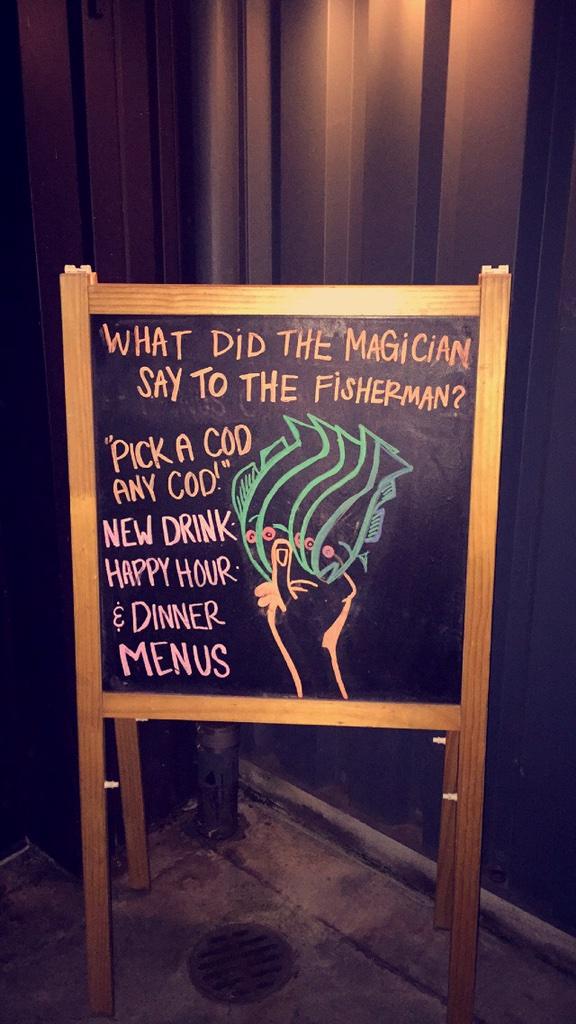 WHAT DID THE MAGICIAN
SAY TO THE FISHERMAN?
"PICK A COD
ANY COD!"
NEW DRINK·
HAPPY HOUR·
& DINNER
MENUS